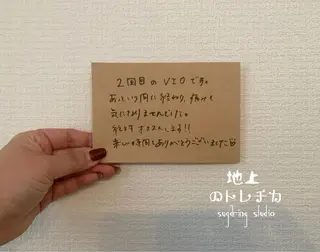 2回目のVIOです。
あっという間に終わり、痛みも
気になりませんでした。
オススメします!!
楽しい時間もありがとうございました
地上
のトレチカ
sugaring studio